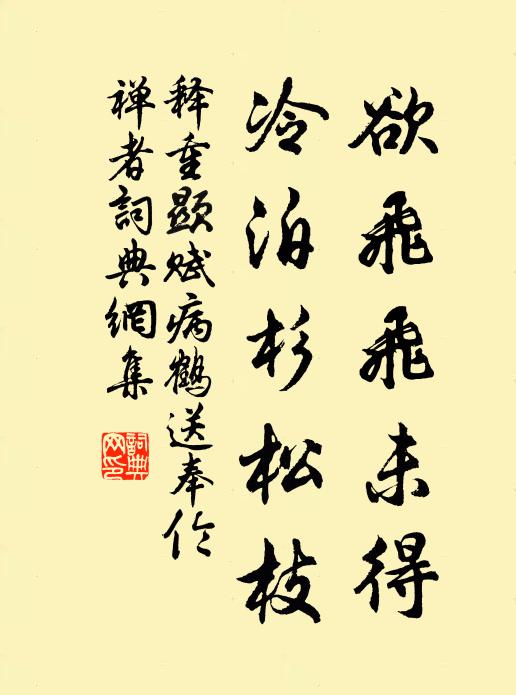 欲飛飛未得
冷泊杉松枝
释重顯赋病鶴送奉伦
禅者詞典網集
詞典网印